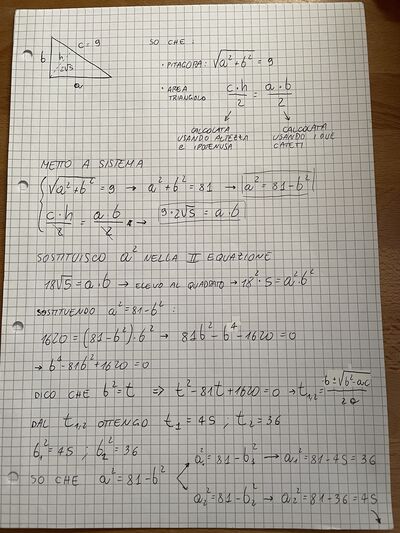 b
c = 9
h
2√5
a
SO CHE :
• PITAGORA: √a²+b² = 9
• AREA TRIANGOLO c·h/2 = a·b/2
CALCOLATA USANDO ALTEZZA E IPOTENUSA
CALCOLATA USANDO I DUE CATETI
METTO A SISTEMA
{ √a²+b² = 9 → a²+b² = 81 → a² = 81-b²
c·h/2 = a·b/2 → 9·2√5 = a·b
SOSTITUISCO a² NELLA II EQUAZIONE
18√5 = a·b → ELEVO AL QUADRATO → 18²·5 = a²b²
SOSTITUENDO a² = 81-b² :
1620 = (81-b²)·b² → 81b²-b⁴-1620 = 0
→ b⁴-81b²+1620 = 0
DICO CHE b² = t ⇒ t²-81t+1620 = 0 → t₁,₂ = -b±√b²-4ac/2a
DAL t₁,₂ OTTENGO t₁ = 45 ; t₂ = 36
b₁² = 45 ; b₂² = 36
SO CHE a² = 81-b²
a₁² = 81-b₁² → a₁² = 81-45 = 36
a₂² = 81-b₂² → a₂² = 81-36 = 45